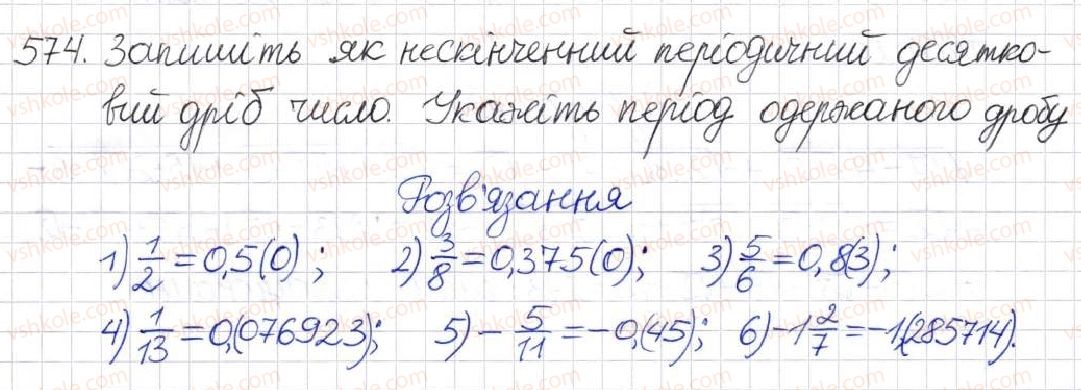 574. Запишіть як нескінченний періодичний десятко-
вий дріб число. Укажіть період одержаного дробу
Розв'язання
1) 1/2 = 0,5(0); 2) 3/8 = 0,375(0); 3) 5/6 = 0,8(3);
4) 1/13 = 0,(076923); 5) - 5/11 = -0,(45); 6) -1 2/7 = -1,(285714).